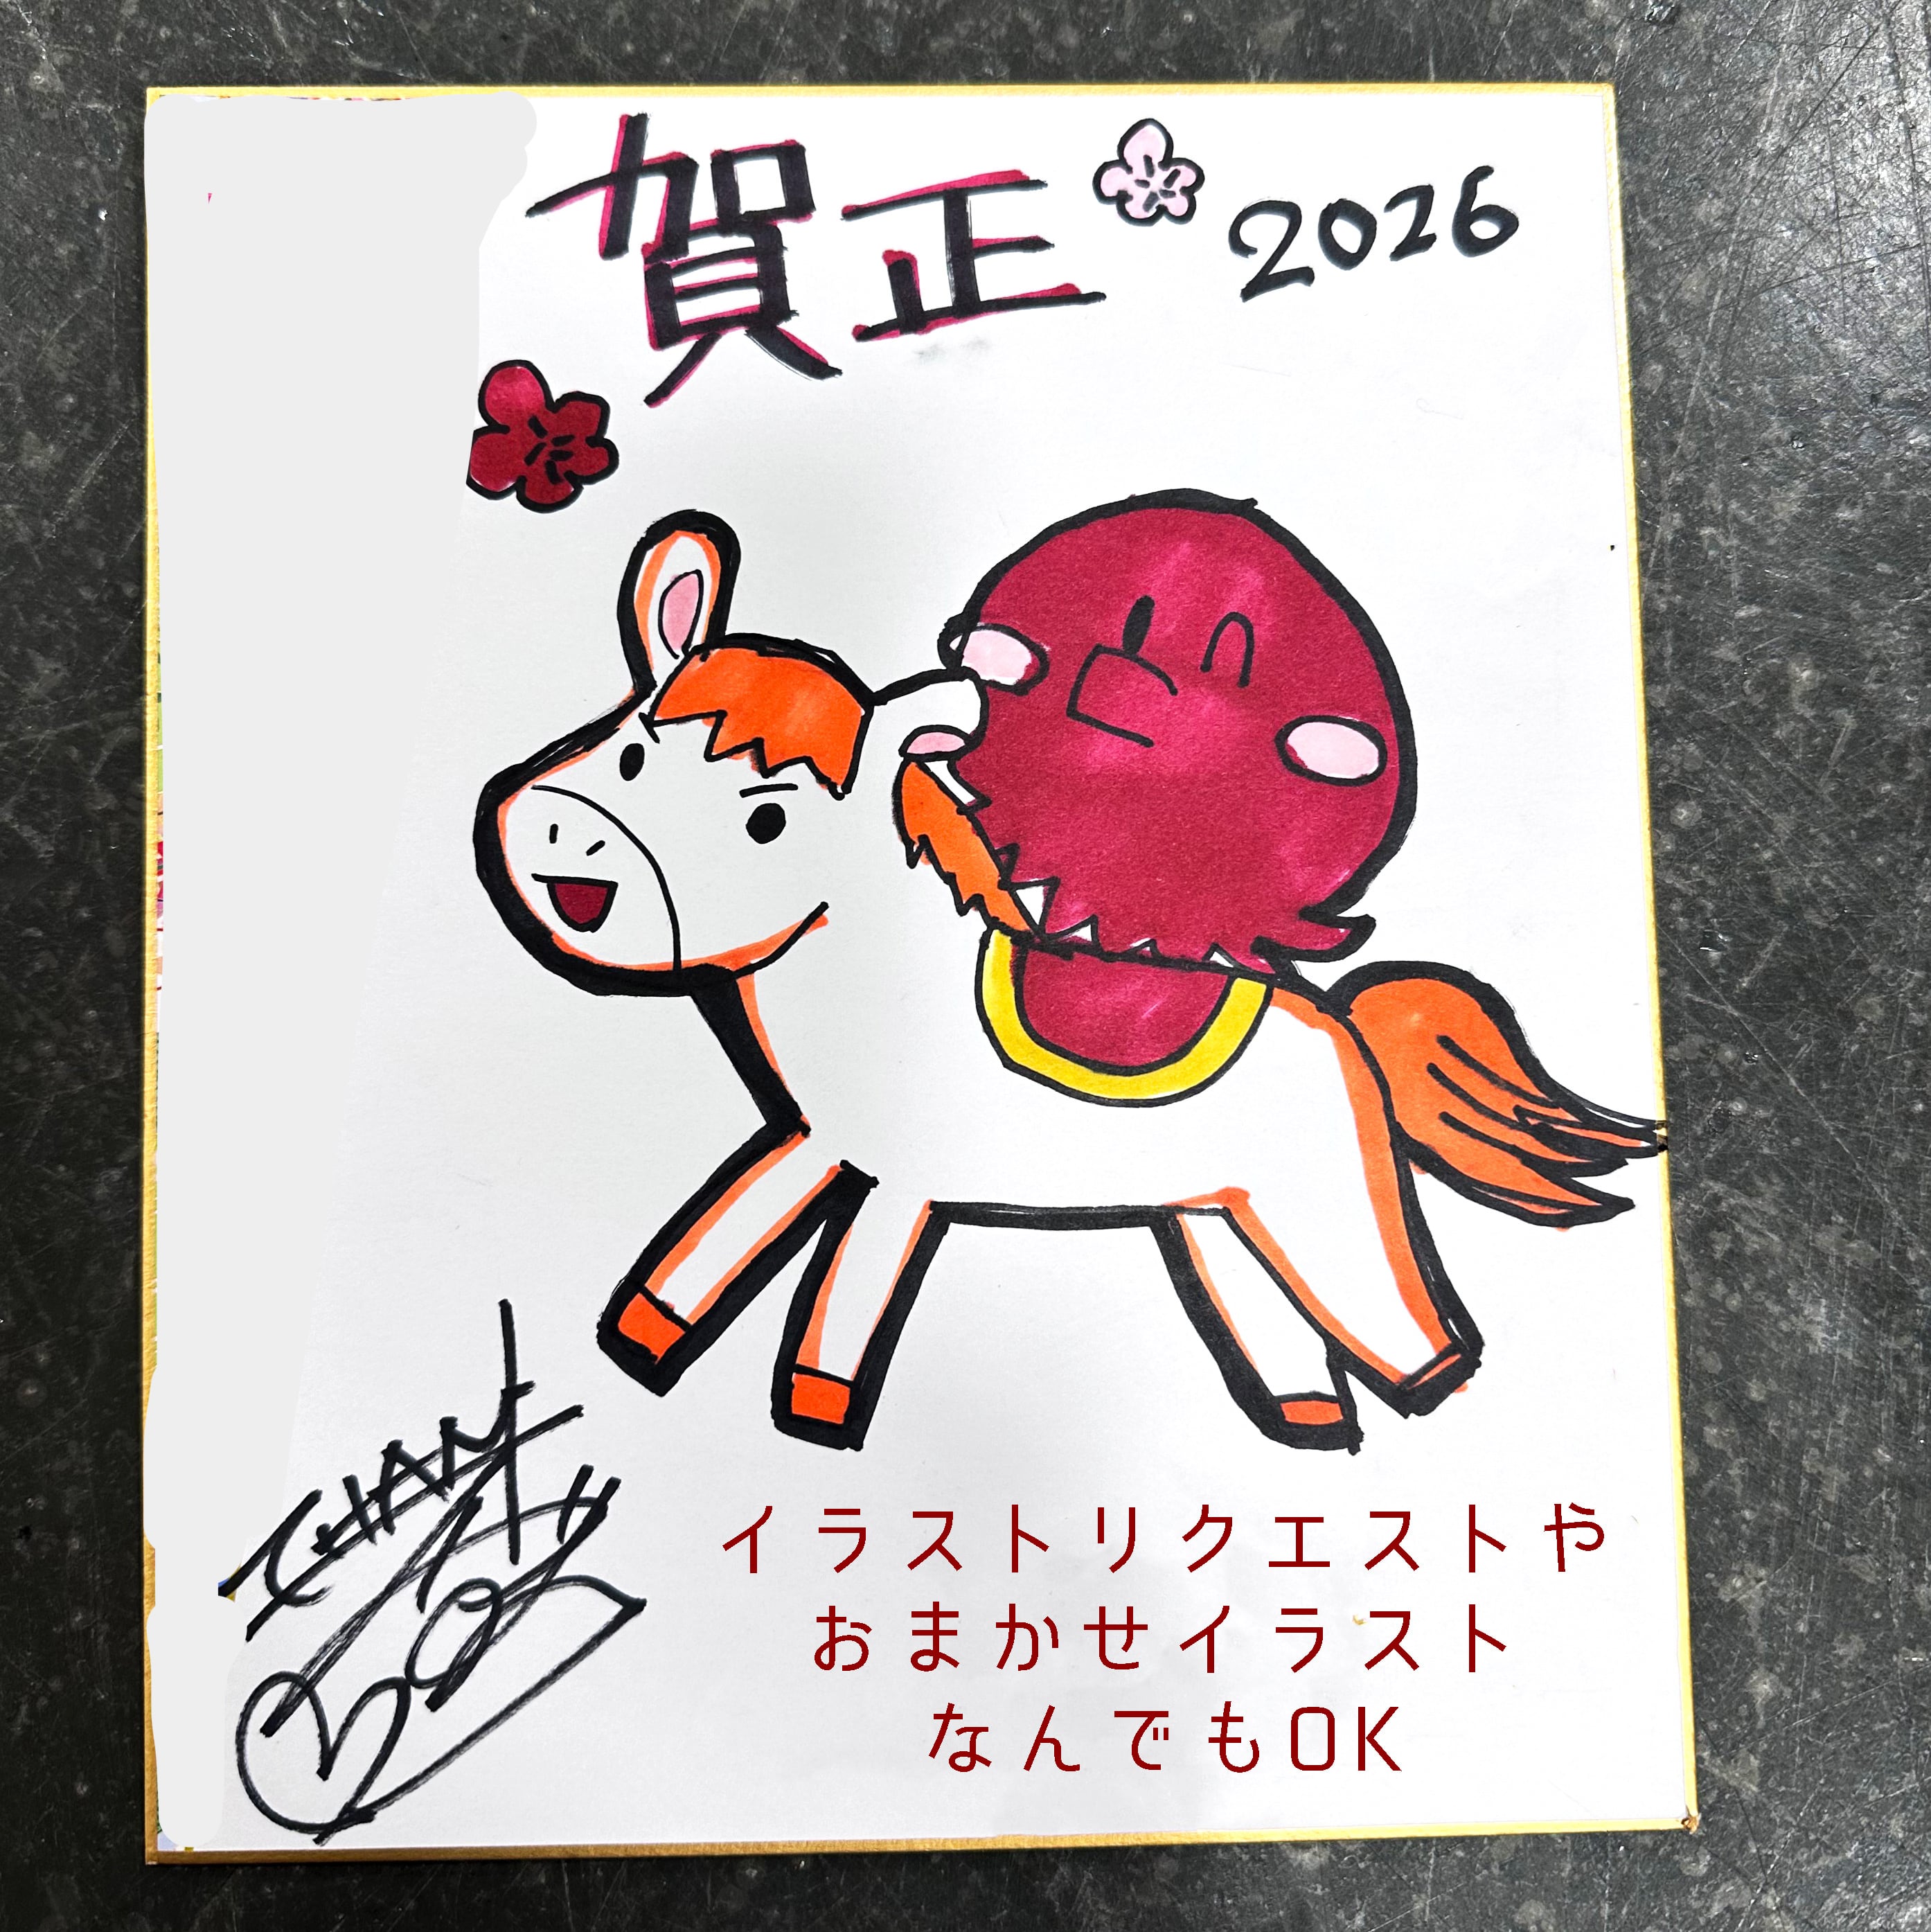 賀正 2026
イラストリクエストや
おまかせイラスト
なんでもOK